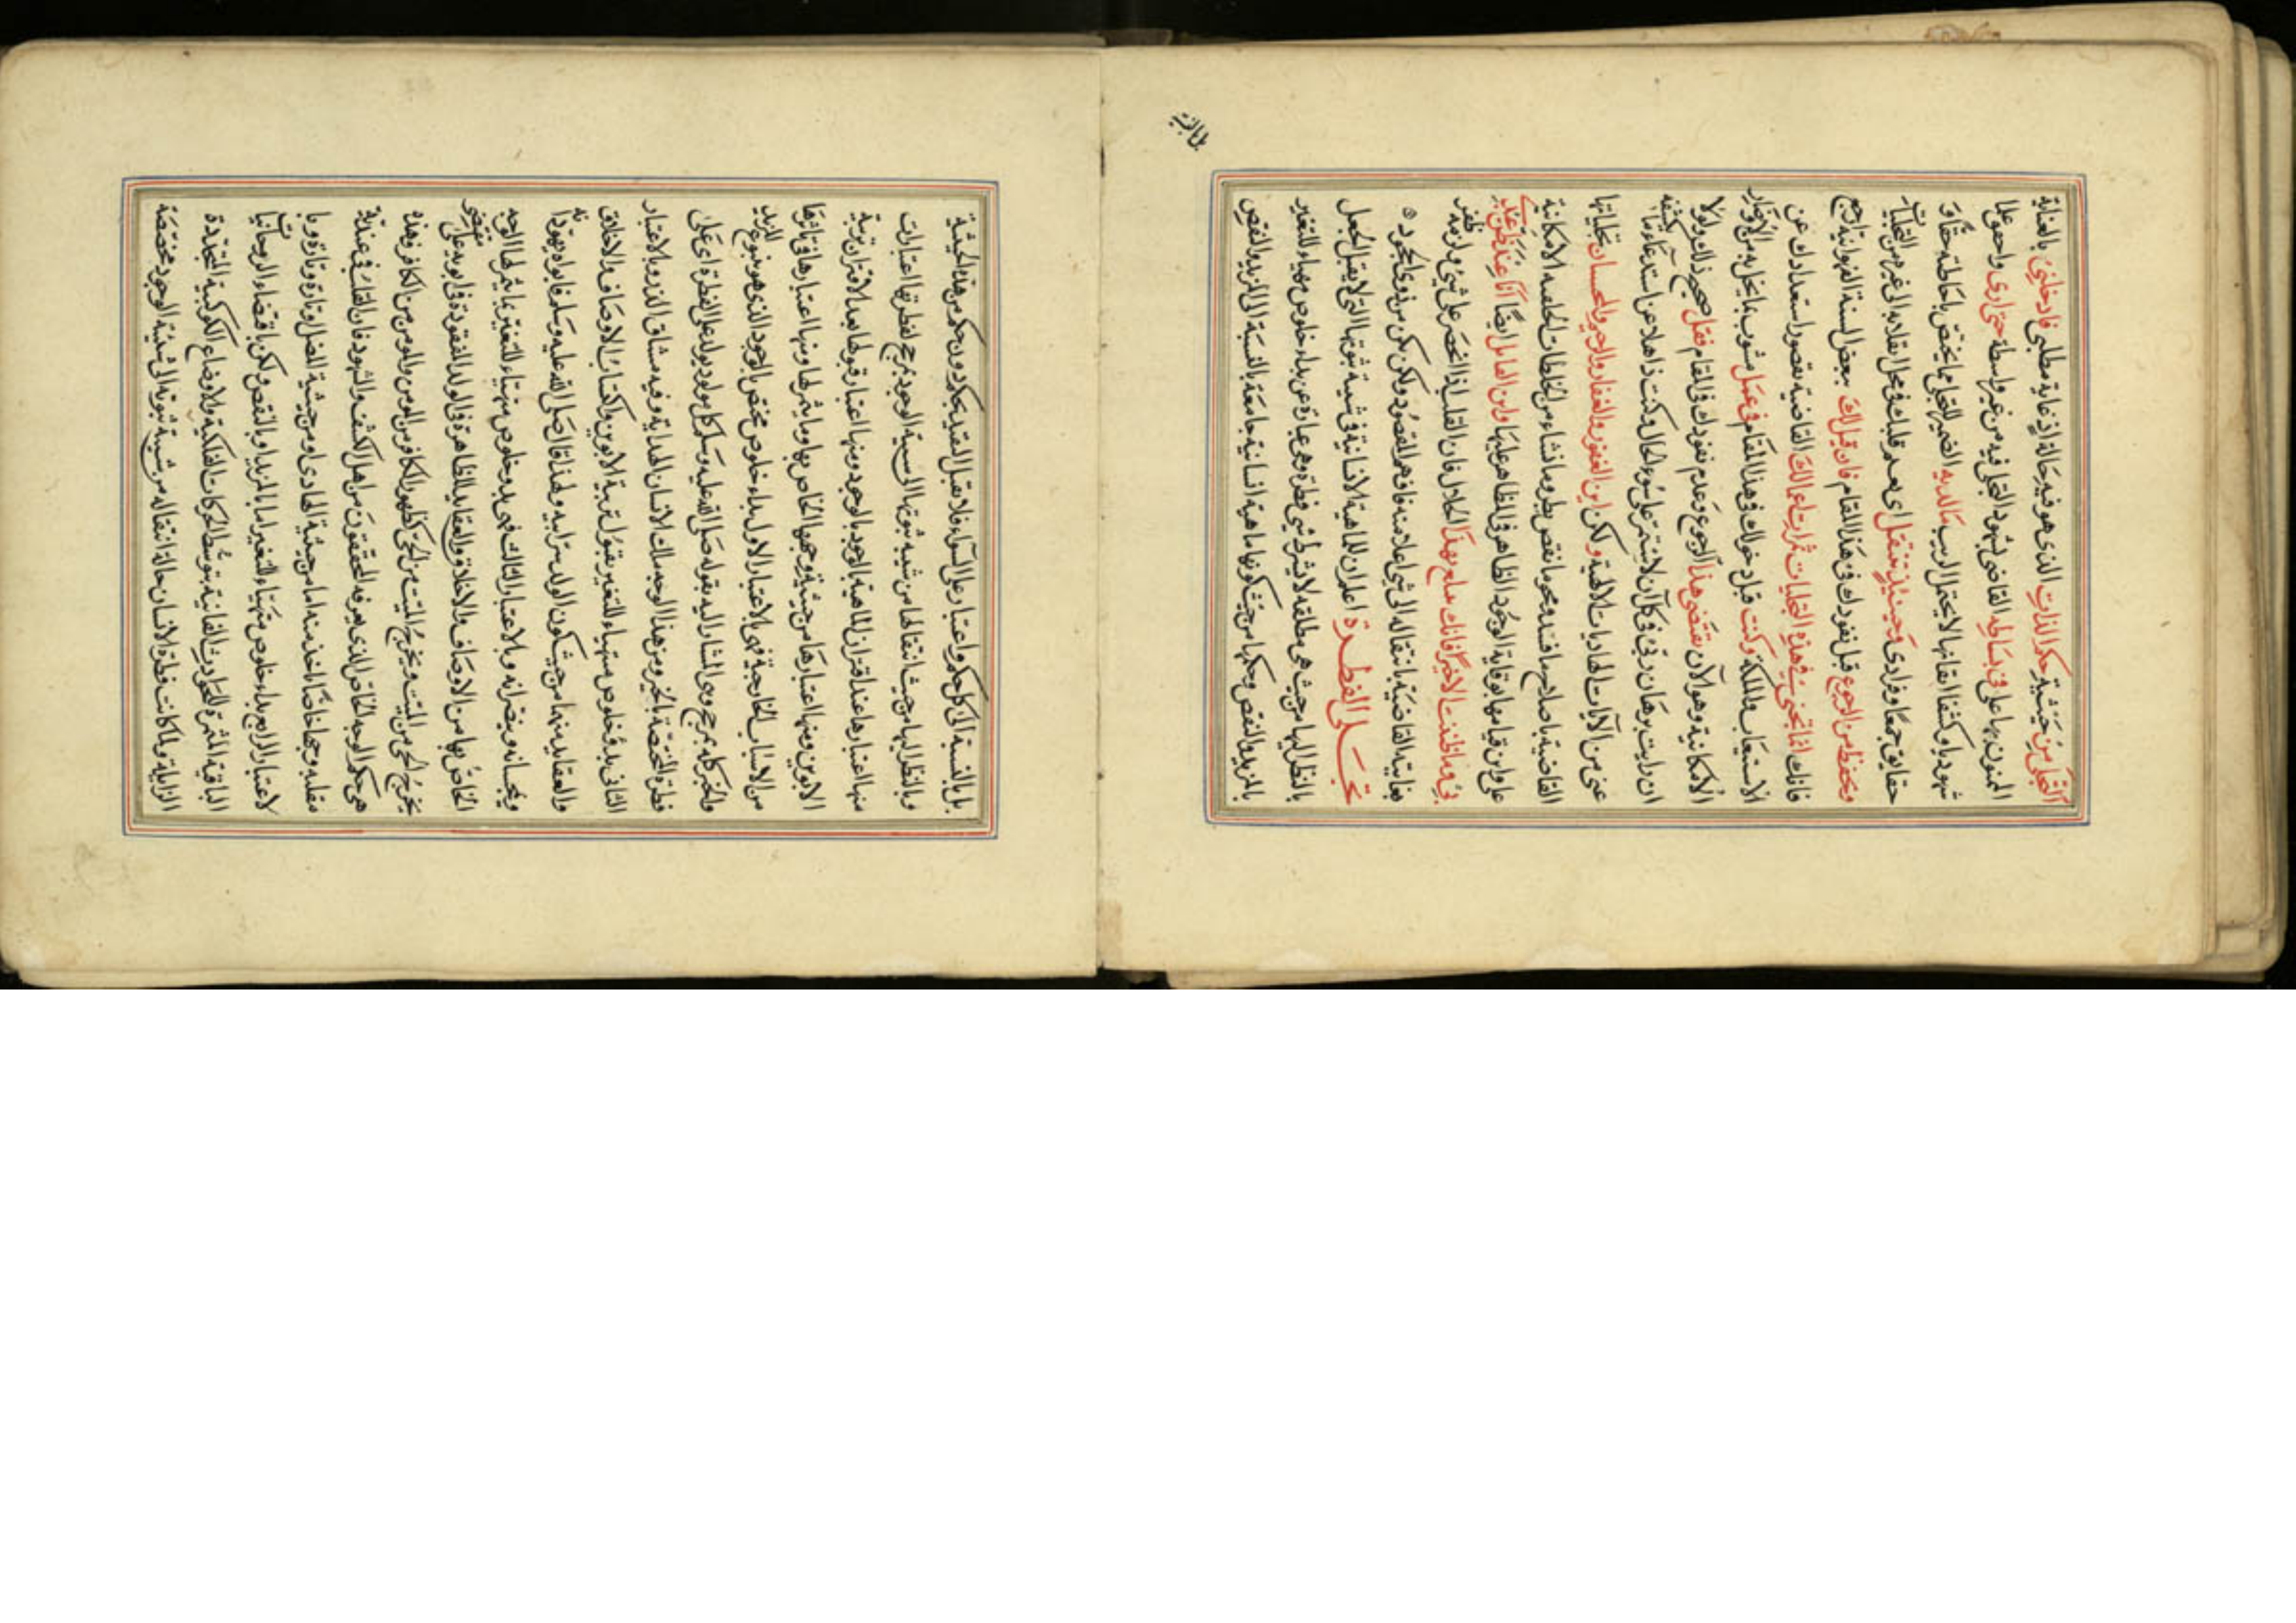 التجلى من حيثية حكم الذات الذى هو فيه حالة اذ غاية مطلبى فادخلنى بالعناية
المنون بها على فى بساطه القاضى بشهود التجلى فيه من غير واسطة حتى ارى واحصو علما
شهوديا وكشفا ايقانيا لا يحتمل الريب مالديه الضمير للتجلى مما يختص باحاطة حقاو
حقايق جمعا وفرادى وحينئذ تنتقل اى بعد قلبك فى محل انقلابه الى غير من التجليات
وتحفظ من الرجوع قبل نفوذك فى هذا المقام فان قيل لك ببعض السنة الفهوانية ارجع
فانك انما تجنى فى هذه التجليات ثمرات اعمالك القاضية بقصور استعدادك عن
الاستيعاب والملكة وكنت قبل دخولك فى هذا المقام فى عمل مشوب بما يخل به من الاوصاف
الامكانية وهو الان يقتضى هذا الرجوع وعدم نفوذك فى المقام فقل صحيح ذلك ولولا
ان رايت برهان ربى فى كل آن لاستمر على سوء الحال وكنت ذاهلا عن استدعاء ما يكشفه
عنى من الآيات الهاديات الالهية ولكن اين الغفور والغفار والرحيم والمحسان بتجلياتها
القاضية باصلاح ما فسد ومحو ما نقص بطروها نشاء من الخلطات الخلقية الامكانية
على واين قيامها بوقاية الوجود الظاهر فى المظاهر عليها واين القائل ايضا انا عند ظن عبدى
بى وما ظننت الا خيرا فانك تنتفع بهذا الجدال فان القلب اذا انحصر على شئ ولزمه ظفر
بغايته القاضية بانتقاله الى شئ اعلا منه فافهم المقصود ولكن مكن من ذوى الجود ۞
تجلى الفطرة اعلم ان للماهية الانسانية فى شيئية ثبوتها التى لا يقبل الجعل
بالنظر اليها من حيث هى مطلقة لا بشرط شئ فطرة وهى عبارة عن بداء خلوص مهياء للتغير
بالمزيد والنقص وحكمها من حيث كونها ماهية انسانية جامعة بالنسبة الى المزيد والنقص
بل بالنسبة
بل بالنسبة الى كل حكم واعتبار على السواء فلا تقبل التقييد بحكم دون حكم من هذه الحيثية
وبالنظر اليها من حيث انتقالها من شيئية ثبوتها الى شيئية الوجود بمرجح لفطرتها اعتبارات
منها اعتبارها عند اقتران الماهية بالوجود ومنها اعتبار قبولها بعد الاقتران تربية
الابوين ومنها اعتبارها من حيثية وجهها الخاص بها وما يثمر لها ومنها اعتبارها فى تاثرها
من الاسباب الخارجية فهى بالاعتبار الاول بداء خلوص مختص بالوجود الذى هو ينبوع المزيد
والخير كله بمرجح وجودى المشار اليه بقوله صلى الله عليه وسلم كل مولود يولد على الفطرة اى على
فطرة المختصة بالخير ومن هذا الوجه ملك الانسان الهداية وفيه مشاق الذر وبالاعتبار
الثانى بدؤ خلوص متهياء للتغير بقبول تربية الابوين واكتساب الاوصاف والاخلاق
والعقايد منهما من حيث كون الولد سر ابيه ولهذا قال صلى الله عليه وسلم فابواه يهودانه
ويمجسانه وينصرانه وبالاعتبار الثالث فهى بدو خلوص متهياء للتغير بما يثمر لها الوجه
الخاص بها من الاوصاف والاخلاق والعقايد الظاهرة فى الولد المفقودة فى ابويه على مقتضى
يخرج الحى من الميت ويخرج الميت من الحى كظهور الكافر من المومن والمومن من الكافر وهذه
هى حكم الوجه الخاص الذى يعرفه المحققون من اهل الكشف والشهود فان القائل فى عندية
مقلبه وجها خاصا الماخذ منه اما من حيثية الهادى او من حيثية المضل او تارة وتارة وبا
لاعتبار الرابع بداء خلوص متهياء للتغير اما بالمزيد او بالنقص ولكن باقتضاء الروحانيات
الباقية المثمرة للحوادث الفانية بتوسط الحركات الفلكية والاوضاع الكوكبية المتجددة
الزايلة ولما كانت فطرة الانسان حالة انتقاله من شيئية ثبوته الى شيئية الوجود مخصصة